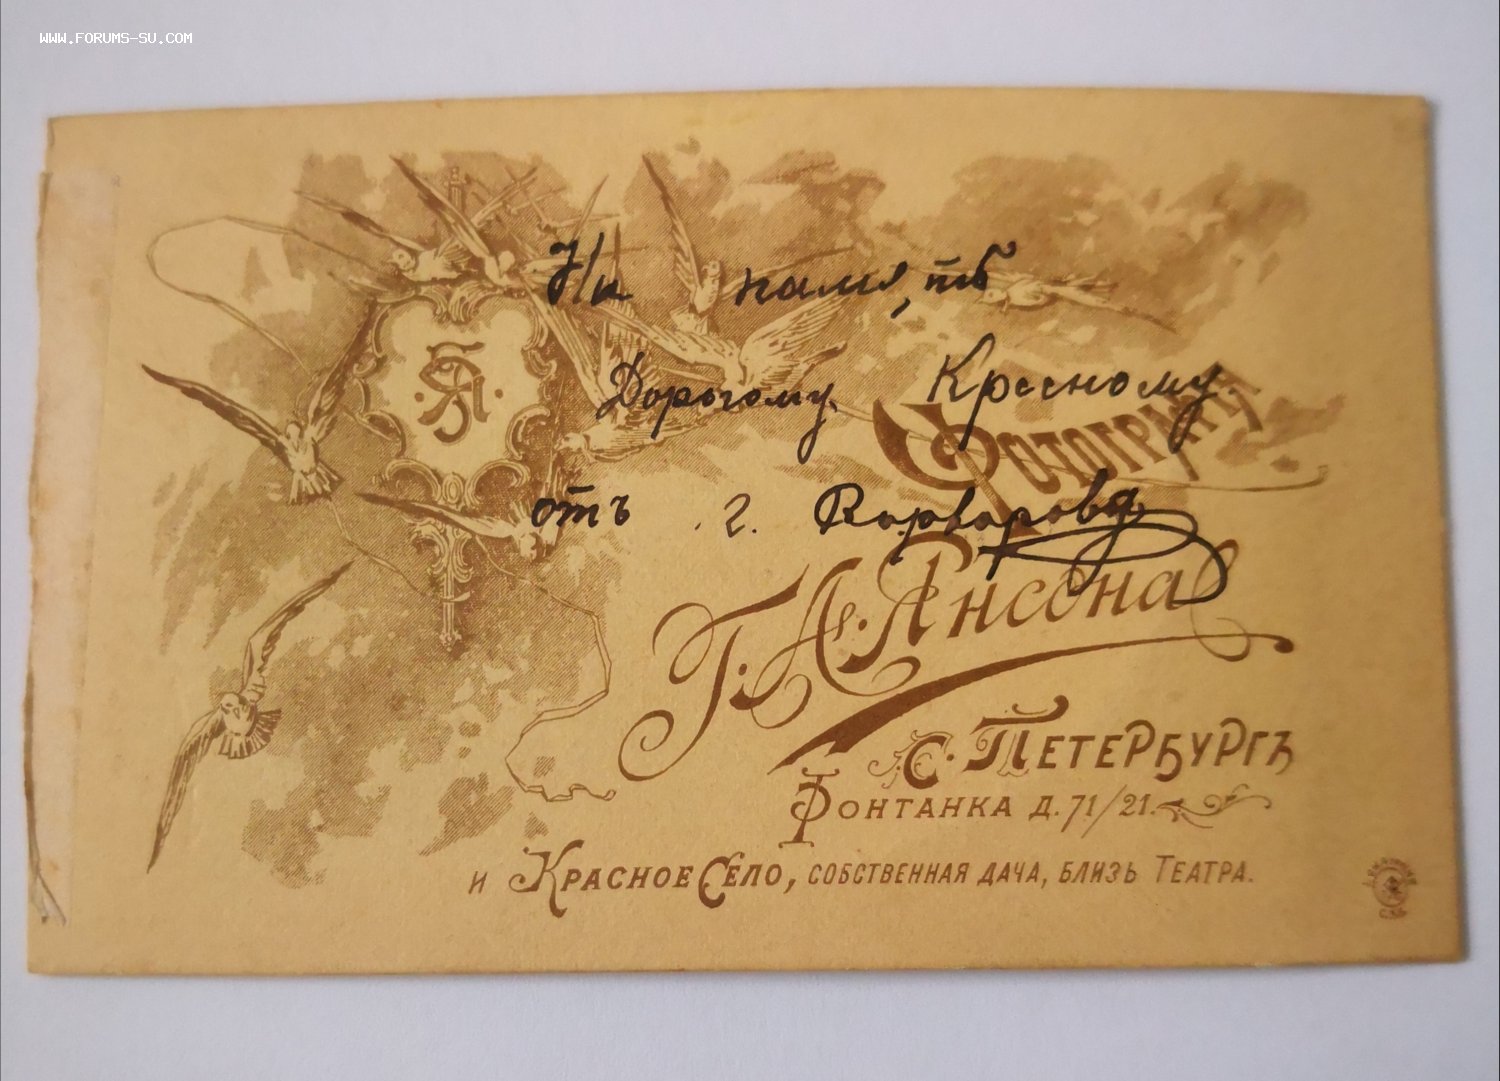 WWW.FORUMS-SU.COM
На память
Дорогому Кресному
отъ г. Варварова
Фотографія
Г. А. Янсона
С. Петербургъ
Фонтанка д. 71/21.
и Красное Село, собственная дача, близь Театра.